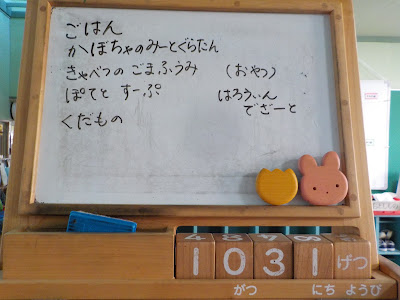 ごはん
かぼちゃのみーとぐらたん
きゃべつの ごまふうみ (おやつ)
ぽてと すーぷ はろうぃん
でざーと
くだもの
1 0 3 1 げつ
がつ にち ようび